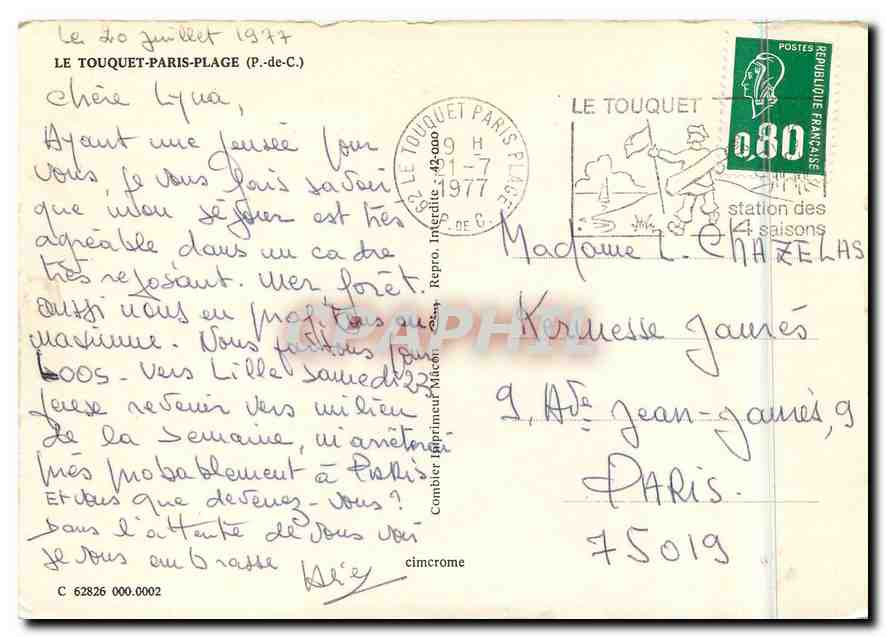 Le 20 juillet 1977
LE TOUQUET-PARIS-PLAGE (P.-de-C.)
Chère Lyna,
Ayant une pensée pour
vous, je vous fais savoir
que mon séjour est très
agréable dans un cadre
très reposant. Mer forêt.
aussi nous en profitons au
maximum. Nous partons pour
LOOS - vers Lille samedi 23
pense revenir vers milieu
de la semaine, m'arrêterai
près probablement à PARIS
Et vous que devenez-vous?
Dans l'attente de vous voir
je vous embrasse
C 62826 000.0002
cimcrome
Combier Imprimeur Mâcon Repro. Interdite 42-000
62 LE TOUQUET PARIS PLAGE
9 H
21-7
1977
P. DE C.
LE TOUQUET
station des
4 saisons
POSTES
REPUBLIQUE FRANÇAISE
0,80
Madame L. CHAZELAS
Kermesse Jaurés
9, Ave Jean-Jaurés, 9
PARIS.
75019
DELCAMPHIL